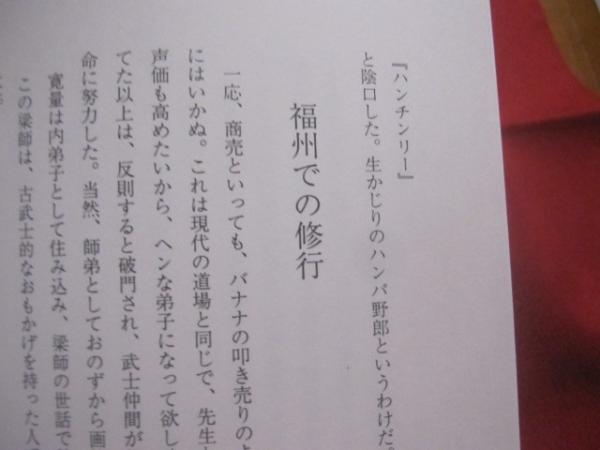 『ハンチンリー』
と陰口した。生かじりのハンパ野郎というわけだ。
福州での修行
一応、商売といっても、バナナの叩き売りのよ
にはいかぬ。これは現代の道場と同じで、先生
声価も高めたいから、ヘンな弟子になって欲し
てた以上は、反則すると破門され、武士仲間が
命に努力した。当然、師弟としておのずから画
寛量は内弟子として住み込み、梁師の世話で
この梁師は、古武士的なおもかげを持った人